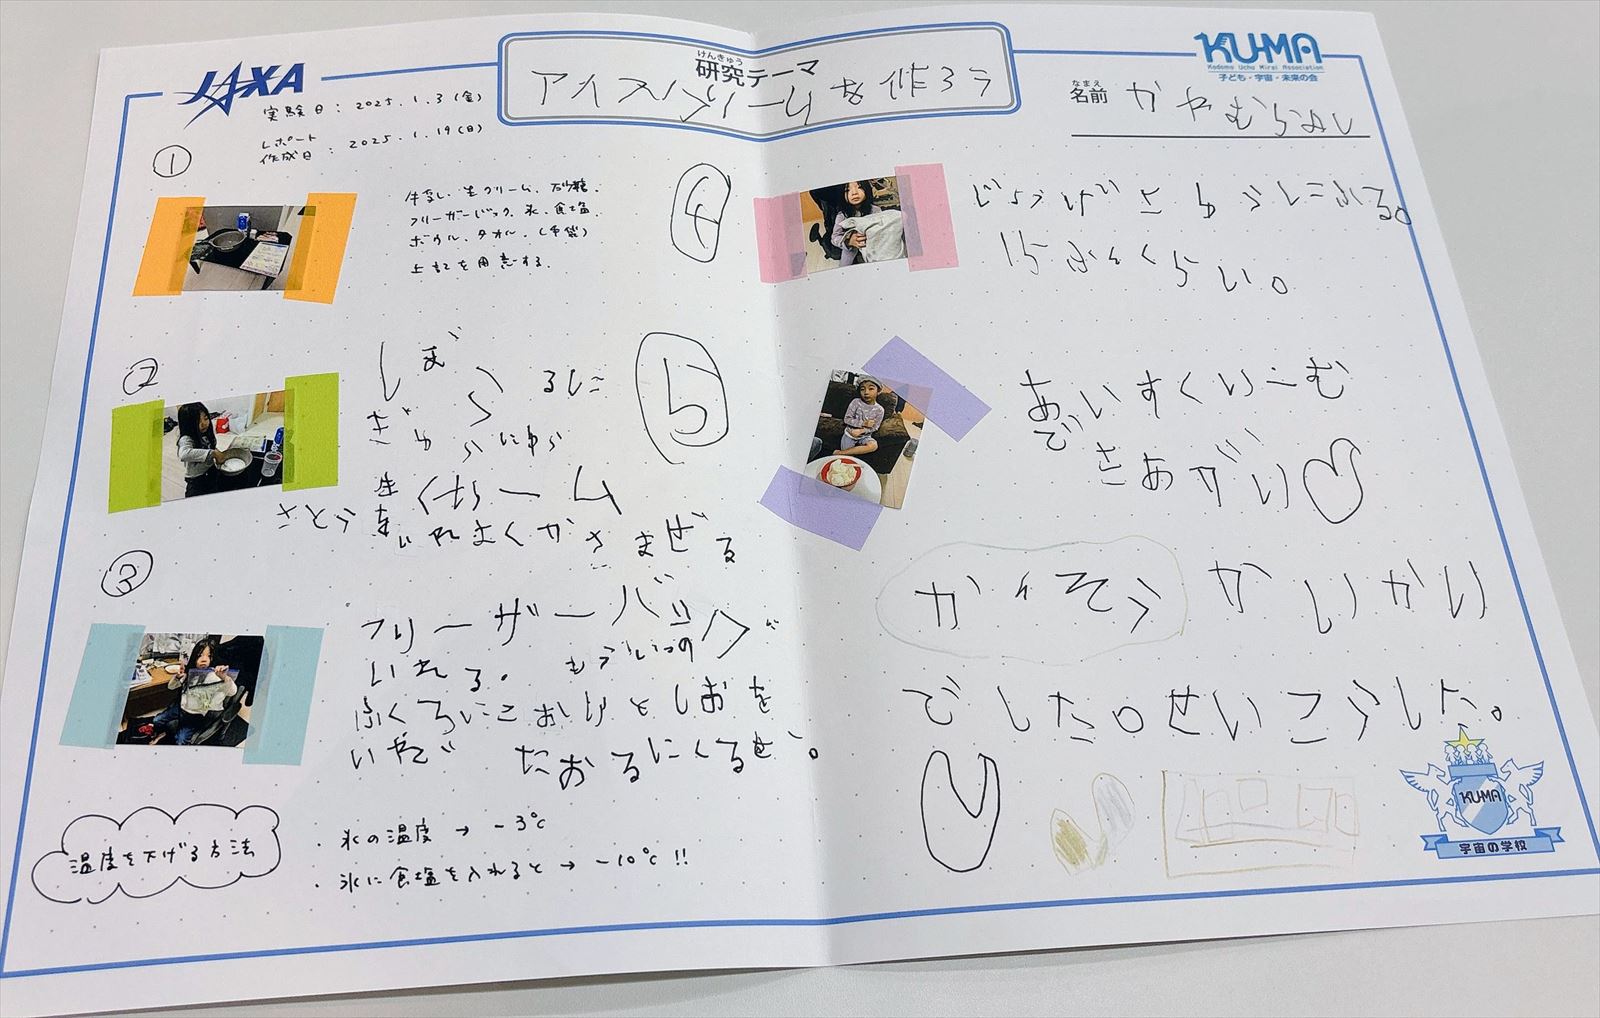 JAXA
けんきゅう
研究テーマ
アイスクリームを作ろう
KU-MA
Kodomo Uchu Mirai Association
子ども・宇宙・未来の会
なまえ
名前
実験日：2025.1.3(金)
レポート
作成日：2025.1.19(日)
①
牛乳、生クリーム、砂糖、
フリーザーバック、氷、食塩、
ボウル、タオル、(手袋)
上記を用意する。
②
ぼうるに
ぎゅうにゅう
生くりーム
さとうを いれよくかきまぜる
③
フリーザーバッグに
いれる。もういつの
ふくろにこおりとしおを
いれて たおるにくるむ。
温度を下げる方法
・氷の温度 → -3℃
・氷に食塩を入れると → -10℃!!
④
じょうげさゆうにふる。
15ふんくらい。
⑤
あいすくりーむ
できあがり
かんそう
でした。せいこうした。
KU-MA
宇宙の学校